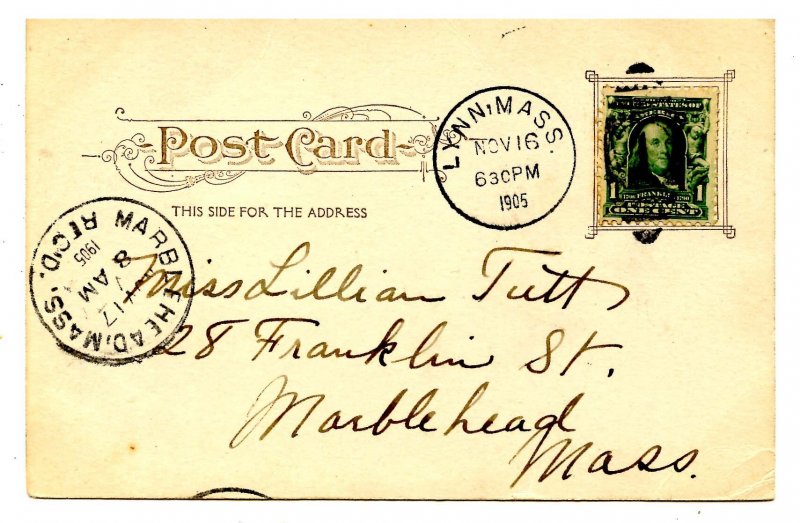 Post Card
THIS SIDE FOR THE ADDRESS
LYNN, MASS.
NOV 16
630 PM
1905
UNITED STATES OF
AMERICA
1 FRANKLIN 1
POSTAGE
ONE CENT
MARBLEHEAD, MASS.
REC'D.
1905
8 AM
17
Miss Lillian Tutt
28 Franklin St.
Marblehead
Mass.